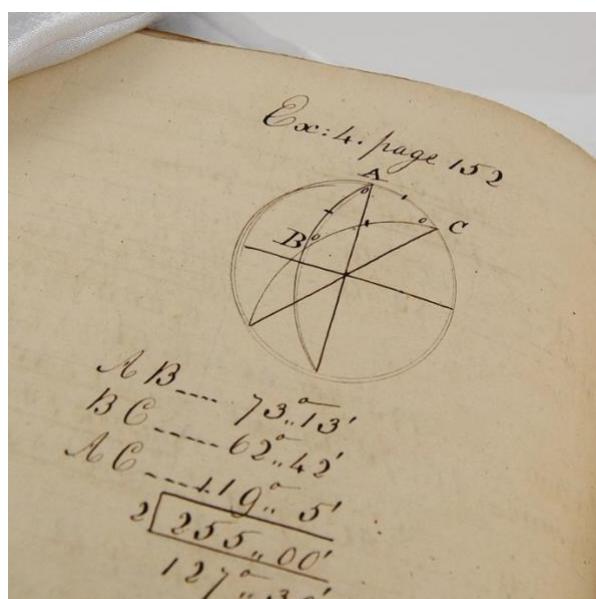 Ex: 4. page 152
A
C
B
AB---- 73°..13'
BC----- 62°..42'
AC----119°.. 5'
2 255..00'
127°..30'